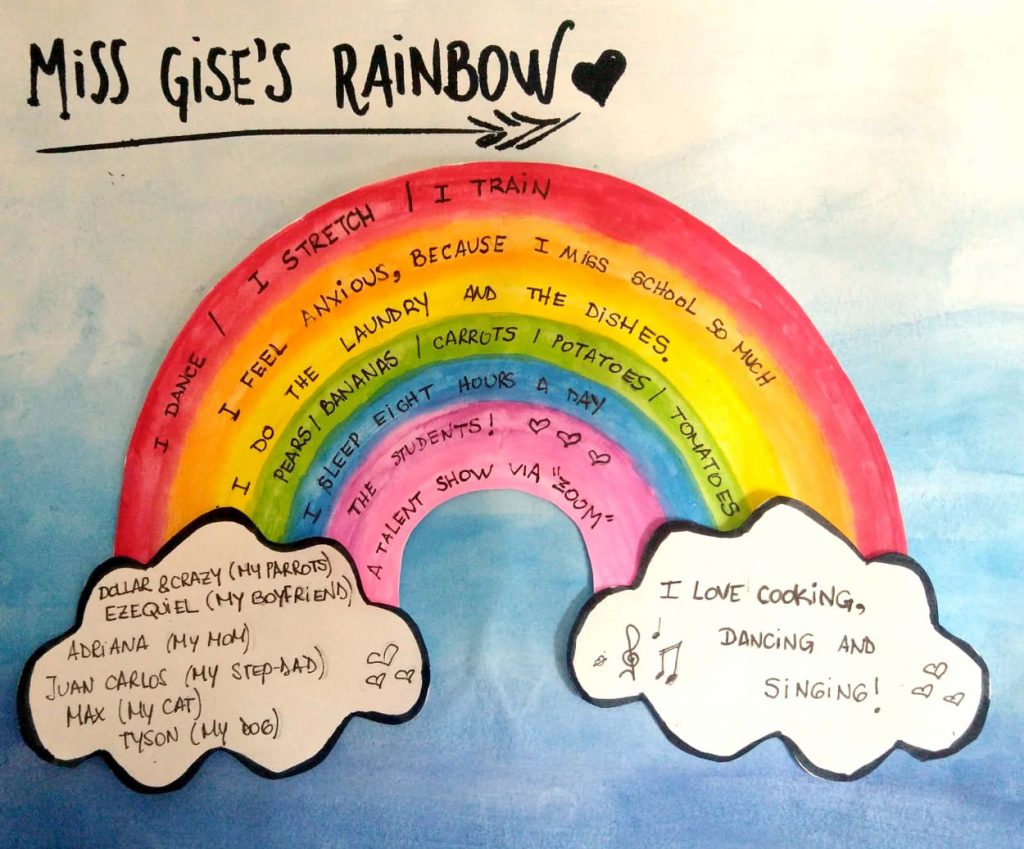 MiSS GiSE'S RAiNBOW
I DANCE / I STRETCH / I TRAIN
I FEEL ANXiOUS, BECAUSE I MiSS SCHOOL SO MUCH
I DO THE LAUNDRY AND THE DiSHES.
PEARS / BANANAS / CARROTS / POTATOES / TOMATOES
I SLEEP EIGHT HOURS A DAY
THE STUDENTS!
A TALENT SHOW ViA "ZOOM"
DOLLAR & CRAZY (MY PARROTS)
EZEQUiEL (MY BOYFRiEND)
ADRiANA (MY MOM)
JUAN CARLOS (MY STEP-DAD)
MAX (MY CAT)
TYSON (MY DOG)
I LOVE COOKiNG,
DANCiNG AND
SiNGiNG!